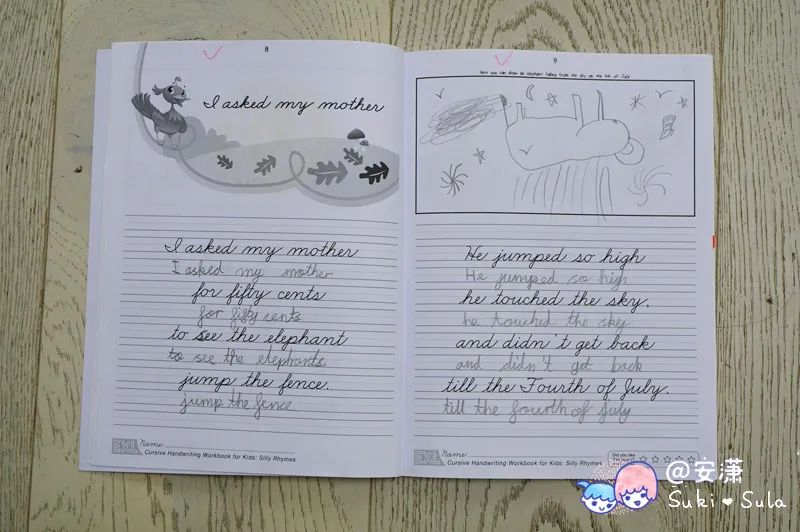 8
I asked my mother
I asked my mother
I asked my mother
for fifty cents
for fifty cents
to see the elephant
to see the elephants
jump the fence.
jump the fence
Name
Cursive Handwriting Workbook for Kids: Silly Rhymes
9
Here you can draw an elephant falling from the sky on the 4th of July
He jumped so high
He jumped so high
he touched the sky,
he touched the sky
and didn't get back
and didn't get back
till the Fourth of July.
till the fourth of July
Name
Cursive Handwriting Workbook for Kids: Silly Rhymes
Did you like
@安潇
Suki Sula